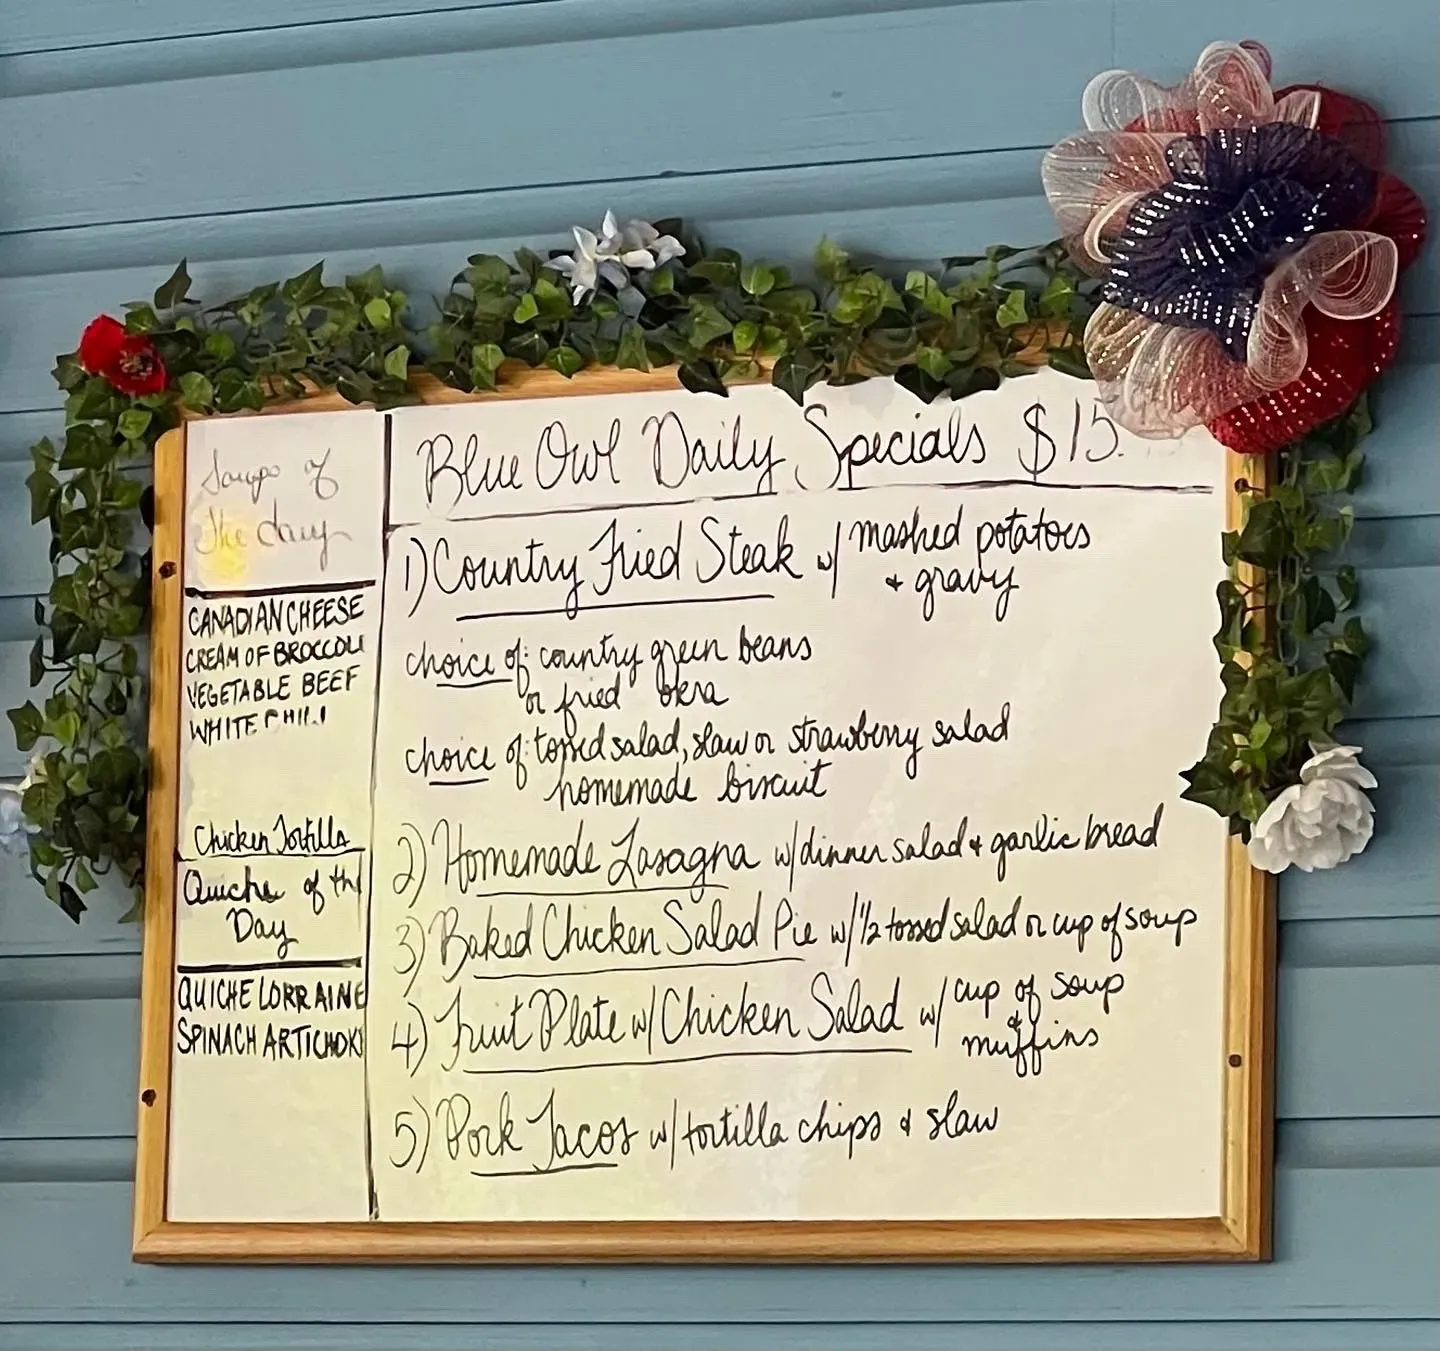 Soups of
the day
CANADIAN CHEESE
CREAM OF BROCCOLI
VEGETABLE BEEF
WHITE CHILI
Chicken Tortilla
Quiche of the
Day
QUICHE LORRAINE
SPINACH ARTICHOKE
Blue Owl Daily Specials $15.
1) Country Fried Steak w/ mashed potatoes
+ gravy
choice of: country green beans
or fried okra
choice of: tossed salad, slaw or strawberry salad
homemade biscuit
2) Homemade Lasagna w/ dinner salad + garlic bread
3) Baked Chicken Salad Pie w/ 1/2 tossed salad or cup of soup
4) Fruit Plate w/ Chicken Salad w/ cup of soup
+ muffins
5) Pork Tacos w/ tortilla chips + slaw